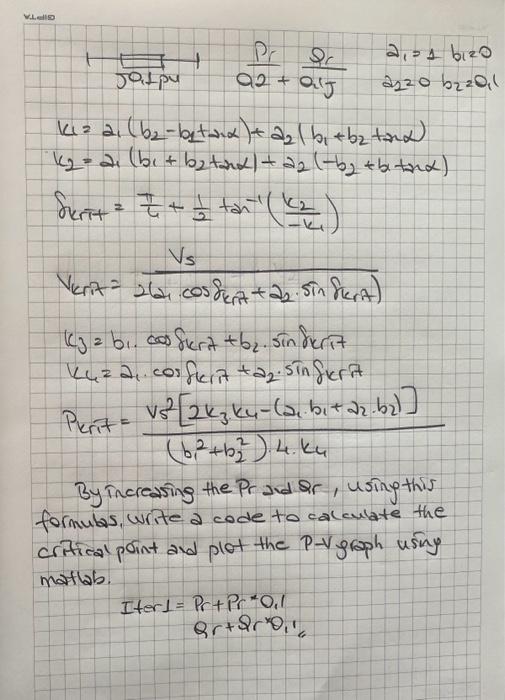 Pr Qr a1 = 1 b1=0
J0,1pu 0,2 + 0,1J a2=0 b2=0,1
k1 = a1 (b2 - b1 tanα) + a2 (b1 + b2 tanα)
k2 = a1 (b1 + b2 tanα) + a2 (-b2 + b1 tanα)
δkrit = π/4 + 1/2 tan⁻¹ (k2/-k1)
Vkrit = Vs / 2(a1 . cosδkrit + a2 . sinδkrit)
k3 = b1 . cosδkrit + b2 . sinδkrit
k4 = a1 . cosδkrit + a2 . sinδkrit
Pkrit = Vs² [2k3k4 - (a1.b1 + a2.b2)] / (b1² + b2²).4.k4
By increasing the Pr and Qr, using this
formulas, write a code to calculate the
critical point and plot the P-V graph using
matlab.
Iter1 = Pr + Pr*0,1
Qr + Qr*0,1